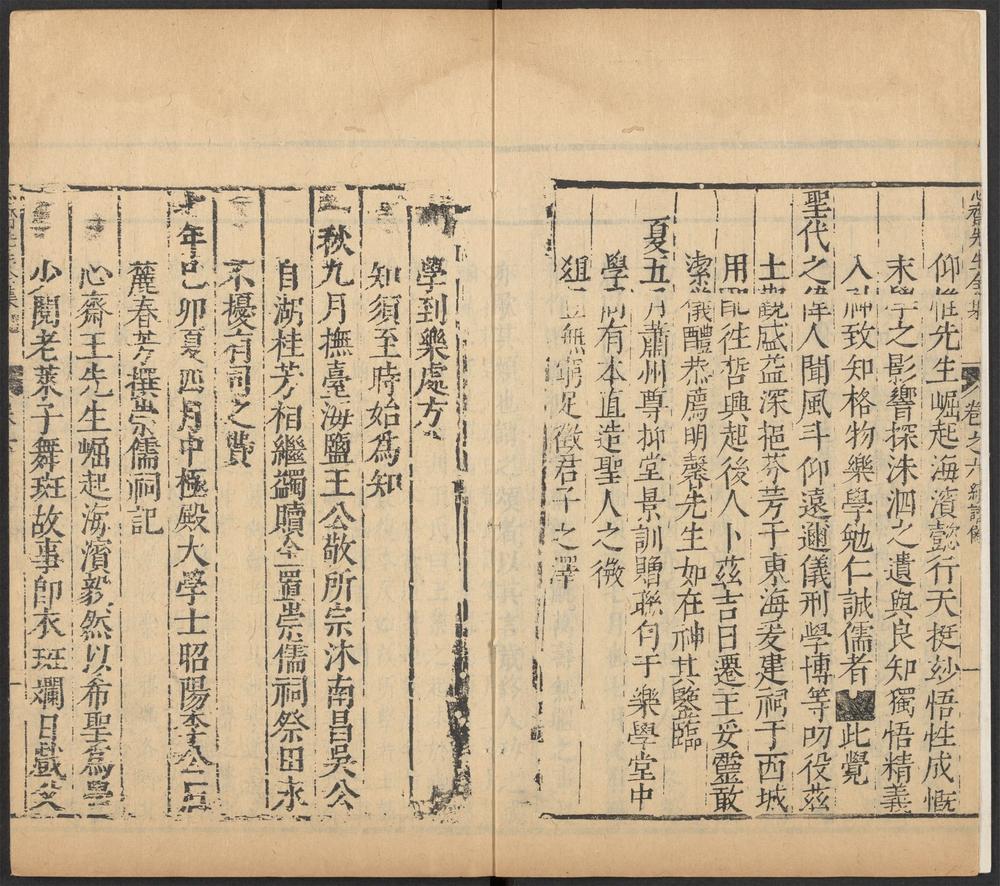 仰惟先生崛起海濱懿行天挺妙悟性成慨
末學之影響探洙泗之遺與良知獨悟精義
入神致知格物樂學勉仁誠儒者此覺
聖代之偉人聞風斗仰遠邇儀刑學博等叨役茲
土觀感益深挹芬芳于東海爰建祠于西城
用配往哲興起後人卜茲吉日遷主妥靈敢
潔儀醴恭薦明馨先生如在神其鑒臨
夏五月蕭州尊抑堂景訓贈聯句于樂學堂中
學有本直造聖人之微
俎豆無窮足徵君子之澤
學到樂處方
知須至時始為知
秋九月撫臺海鹽王公敬所宗沐南昌吳公
自湖桂芳相繼蠲贖金置崇儒祠祭田永
不擾有司之費
七年己卯夏四月中極殿大學士昭陽李公石
麓春芳撰崇儒祠記
心齋王先生崛起海濱毅然以希聖為學
少閱老萊子舞斑故事即衣斑斕日戲父